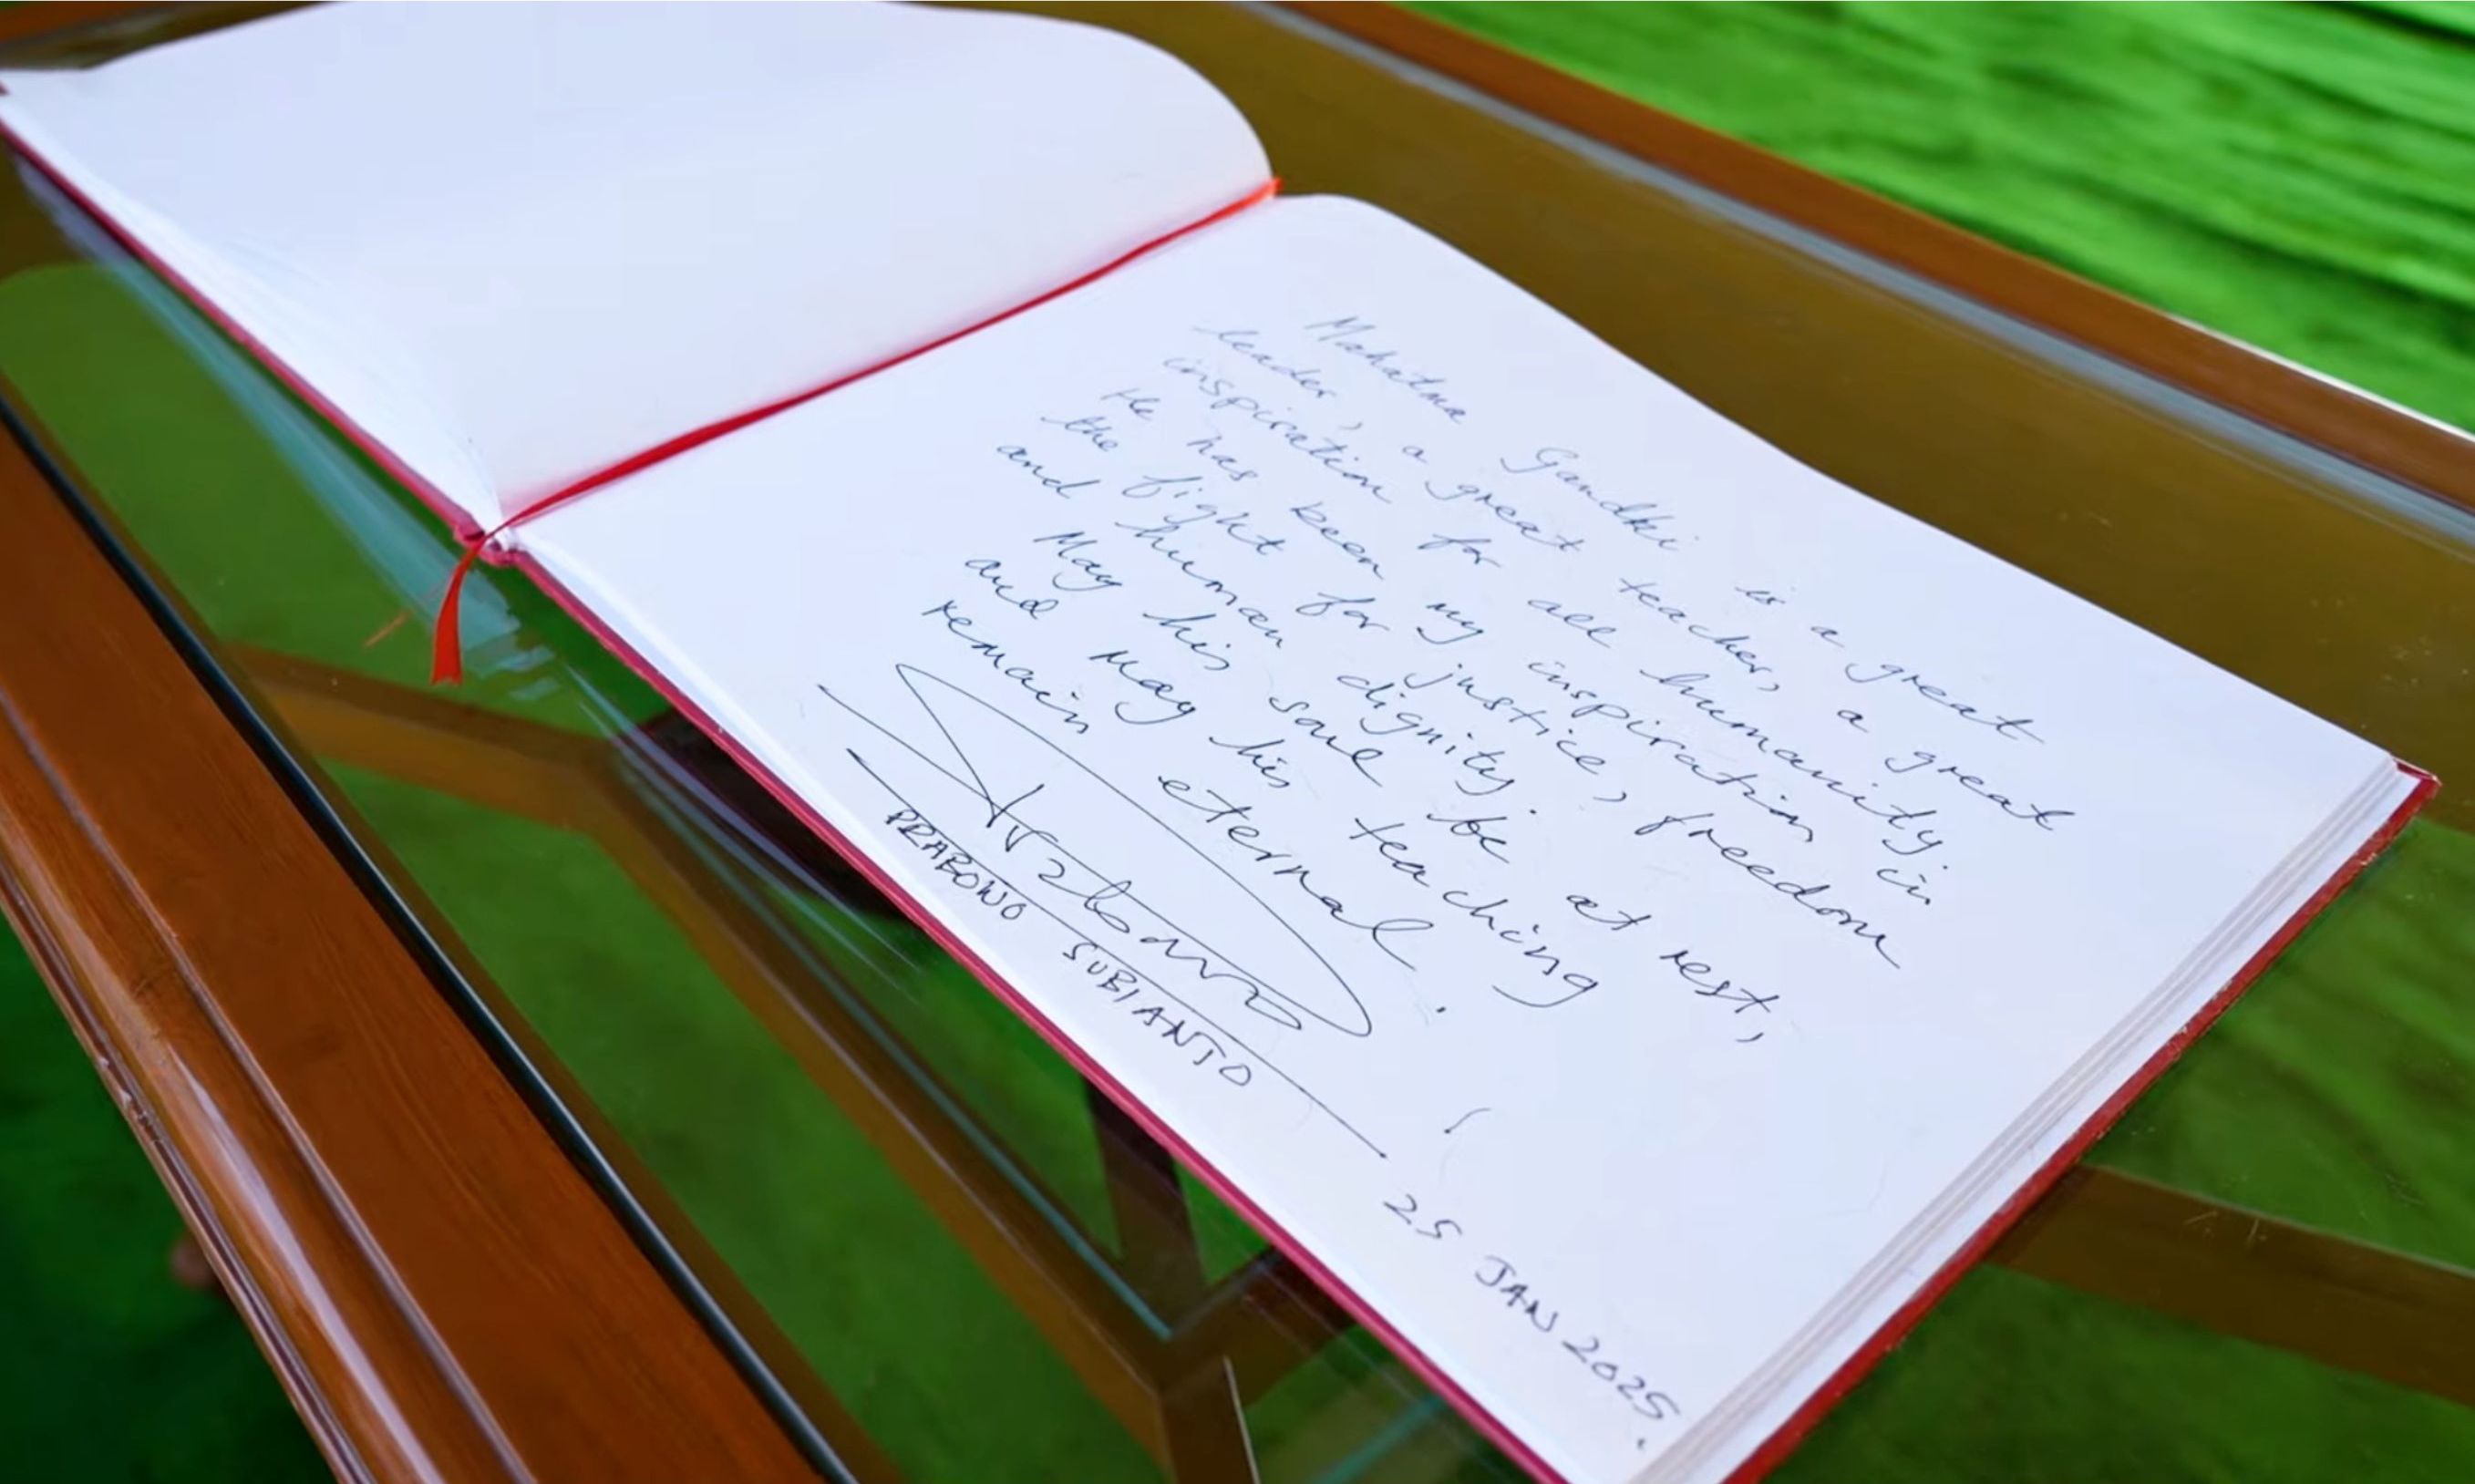 Mahatma Gandhi is a great
leader, a great teacher, a great
inspiration for all humanity.
He has been my inspiration in
the fight for justice, freedom
and human dignity.
May his soul be at rest,
and may his teaching
remain eternal.
Prabowo
PRABOWO SUBIANTO
25 JAN 2025.